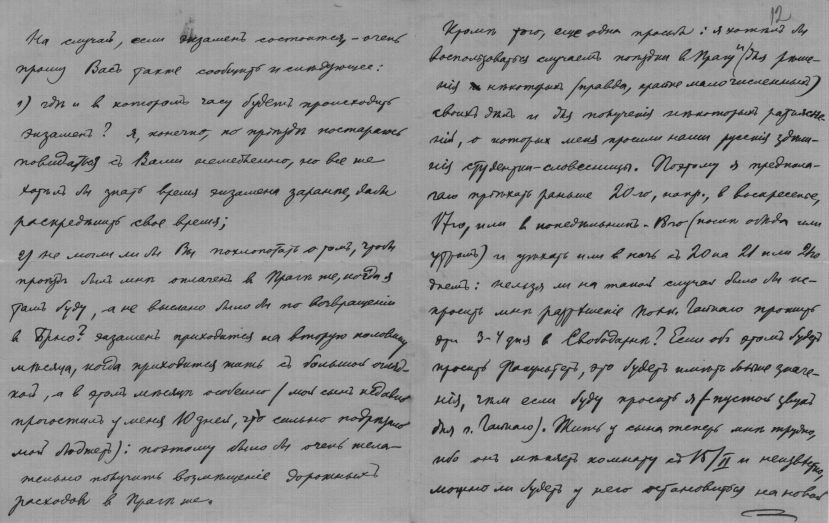 На случай, если экзаменъ состоится, – очень
прошу Васъ также сообщить и слѣдующее:
1) гдѣ и въ которомъ часу будетъ происходить
экзаменъ? Я, конечно, по пріѣздѣ постараюсь
повидаться съ Вами немедленно, но все же
хотѣлъ бы знать время экзамена заранѣе, дабы
распредѣлить свое время;
2) не могли ли бы Вы похлопотать о томъ, чтобы
проѣздъ былъ мнѣ оплаченъ въ Прагѣ же, когда я
тамъ буду, а не выслано было бы по возвращеніи
въ Брно? Экзаменъ приходится на вторую половину
мѣсяца, когда приходится жить съ большой огляд-
кой, а въ этомъ мѣсяцѣ особенно (мой сынъ недавно
прогостилъ у меня 10 дней, что сильно подрѣзало
мой бюджетъ): поэтому было бы очень жела-
тельно получить возмѣщеніе дорожныхъ
расходовъ въ Прагѣ же.
12
Кромѣ того, еще одна просьба: я хотѣлъ бы
воспользоваться случаемъ поѣздки въ Прагу для рѣше-
нія нѣкоторыхъ (правда, крайне малочисленныхъ)
своихъ дѣлъ и для полученія нѣкоторыхъ разъясне-
ній, о которыхъ меня просили наши русскія здѣш-
нія студентки-словесницы. Поэтому я предпола-
гаю пріѣхать раньше 20-го, напр., въ воскресенье,
17го, или въ понедѣльникъ 18го (послѣ обѣда или
утромъ) и уѣхать или въ ночь съ 20 на 21 или 21го
днемъ: нельзя ли на такой случай было бы ис-
просить мнѣ разрѣшеніе прожить
эти 3-4 дня въ Свободарнѣ? Если объ этомъ будетъ
просить Факультетъ, это будетъ имѣть больше значе-
нія, чѣмъ если буду просить я (– пустой звукъ
для г. ). Жить у сына теперь мнѣ трудно,
ибо онъ мѣняетъ комнату съ 15/II и неизвѣстно,
можно ли будетъ у него остановиться на новой